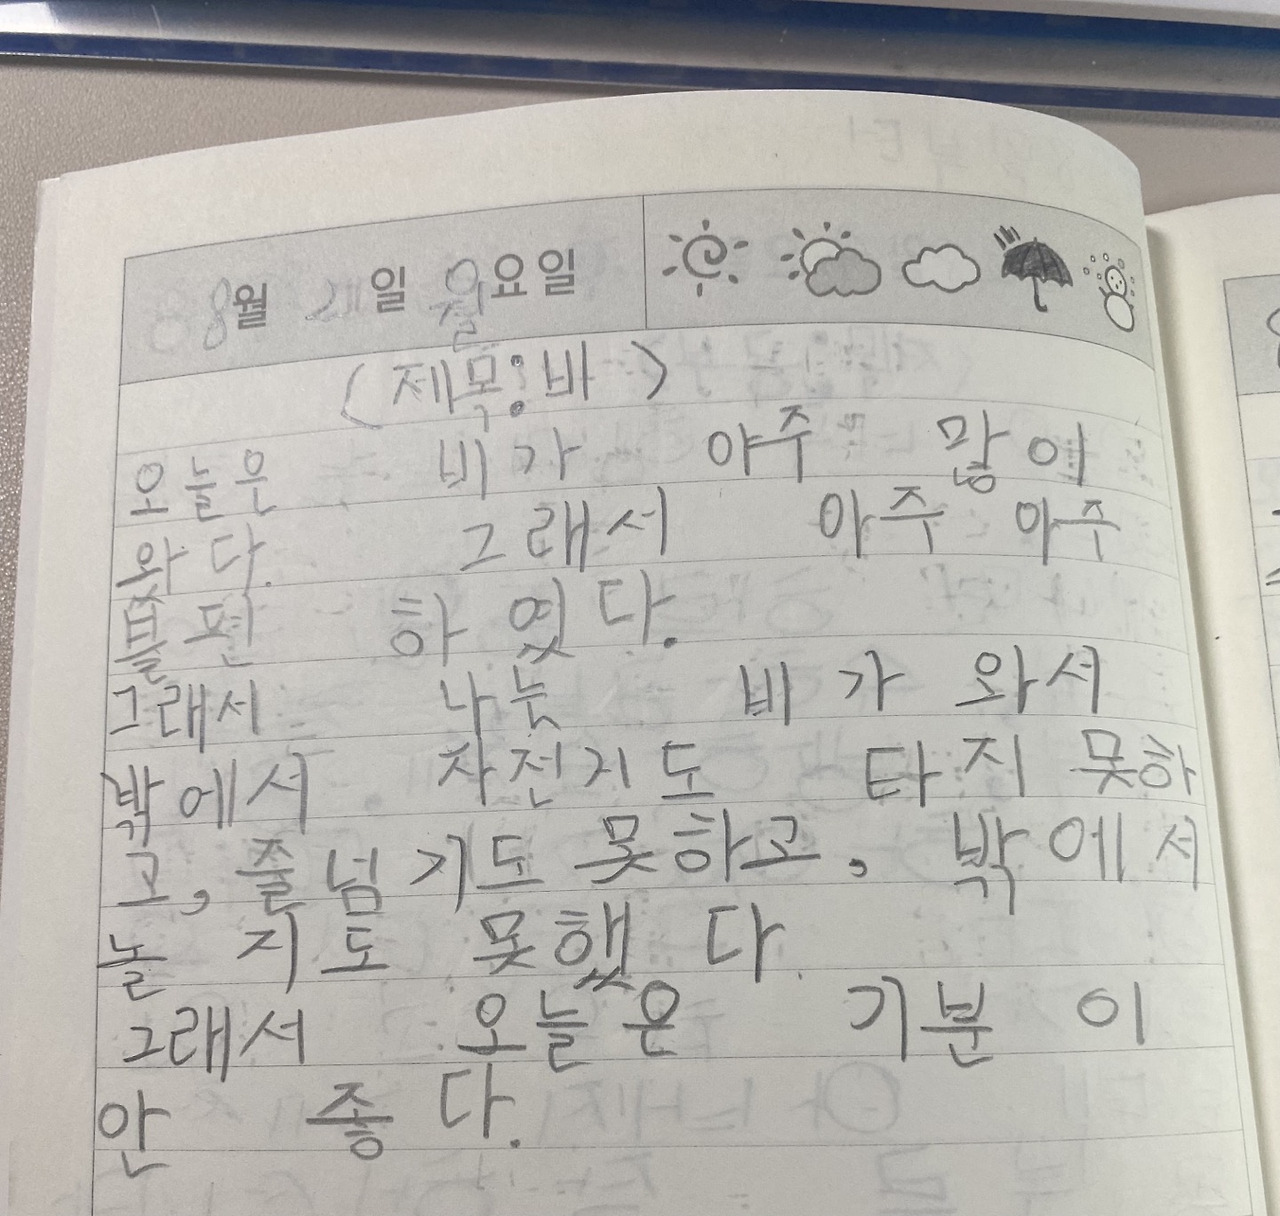 8월 일 월요일
<제목: 비>
오늘은 비가 아주 많이
왔다. 그래서 아주 아주
불편 하였다.
그래서 나는 비가 와서
밖에서 자전거도 타지 못하
고, 줄넘기도 못하고, 밖에서
놀 지도 못했다.
그래서 오늘은 기분이
안 좋다.